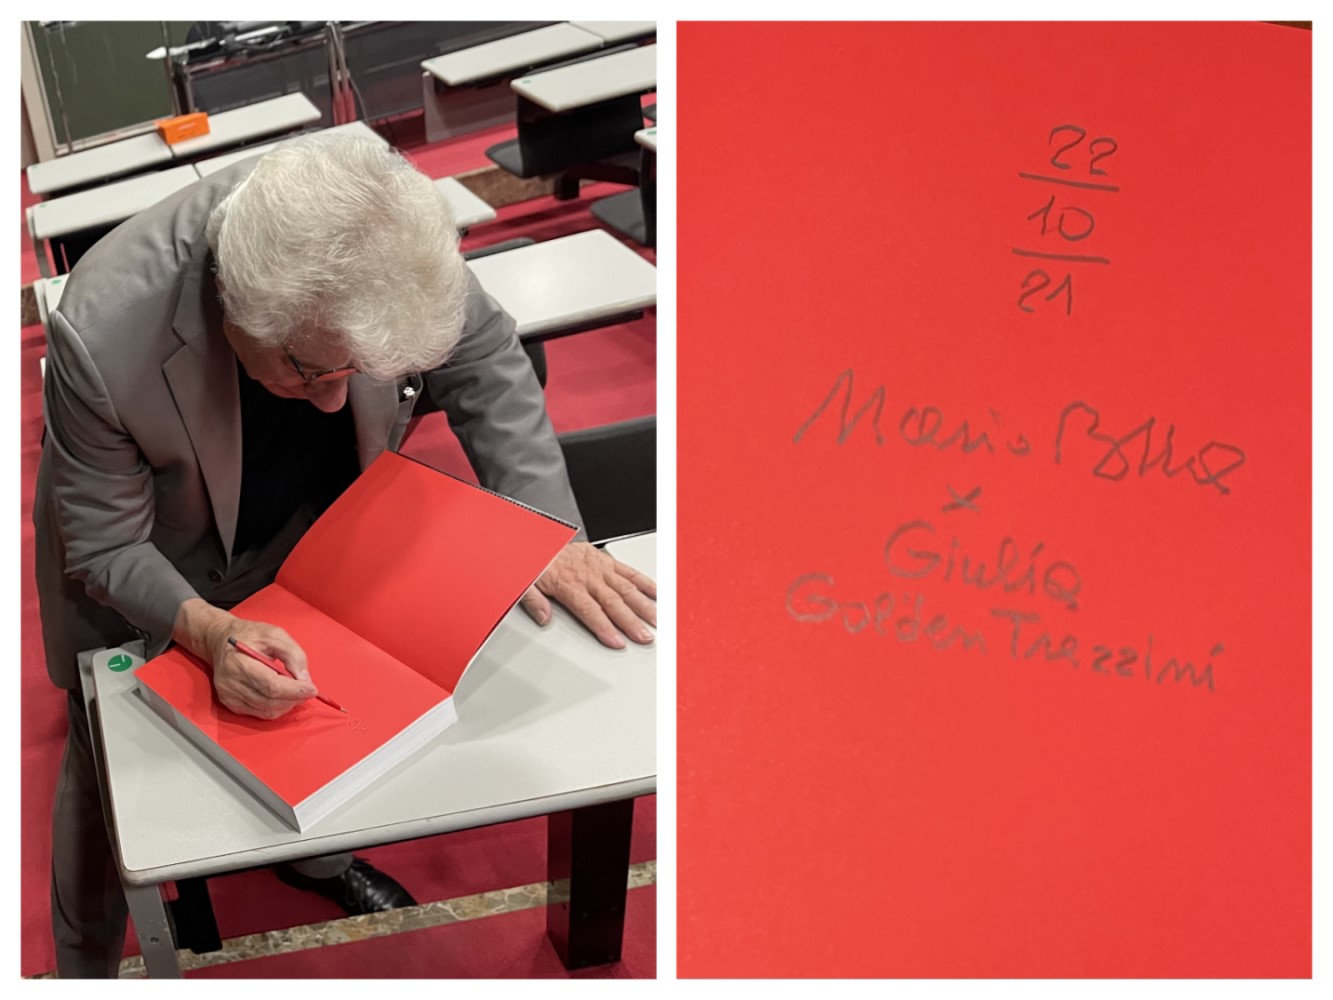 22
10
21
Mario Botta
x
Giulia
Golden Trezzini